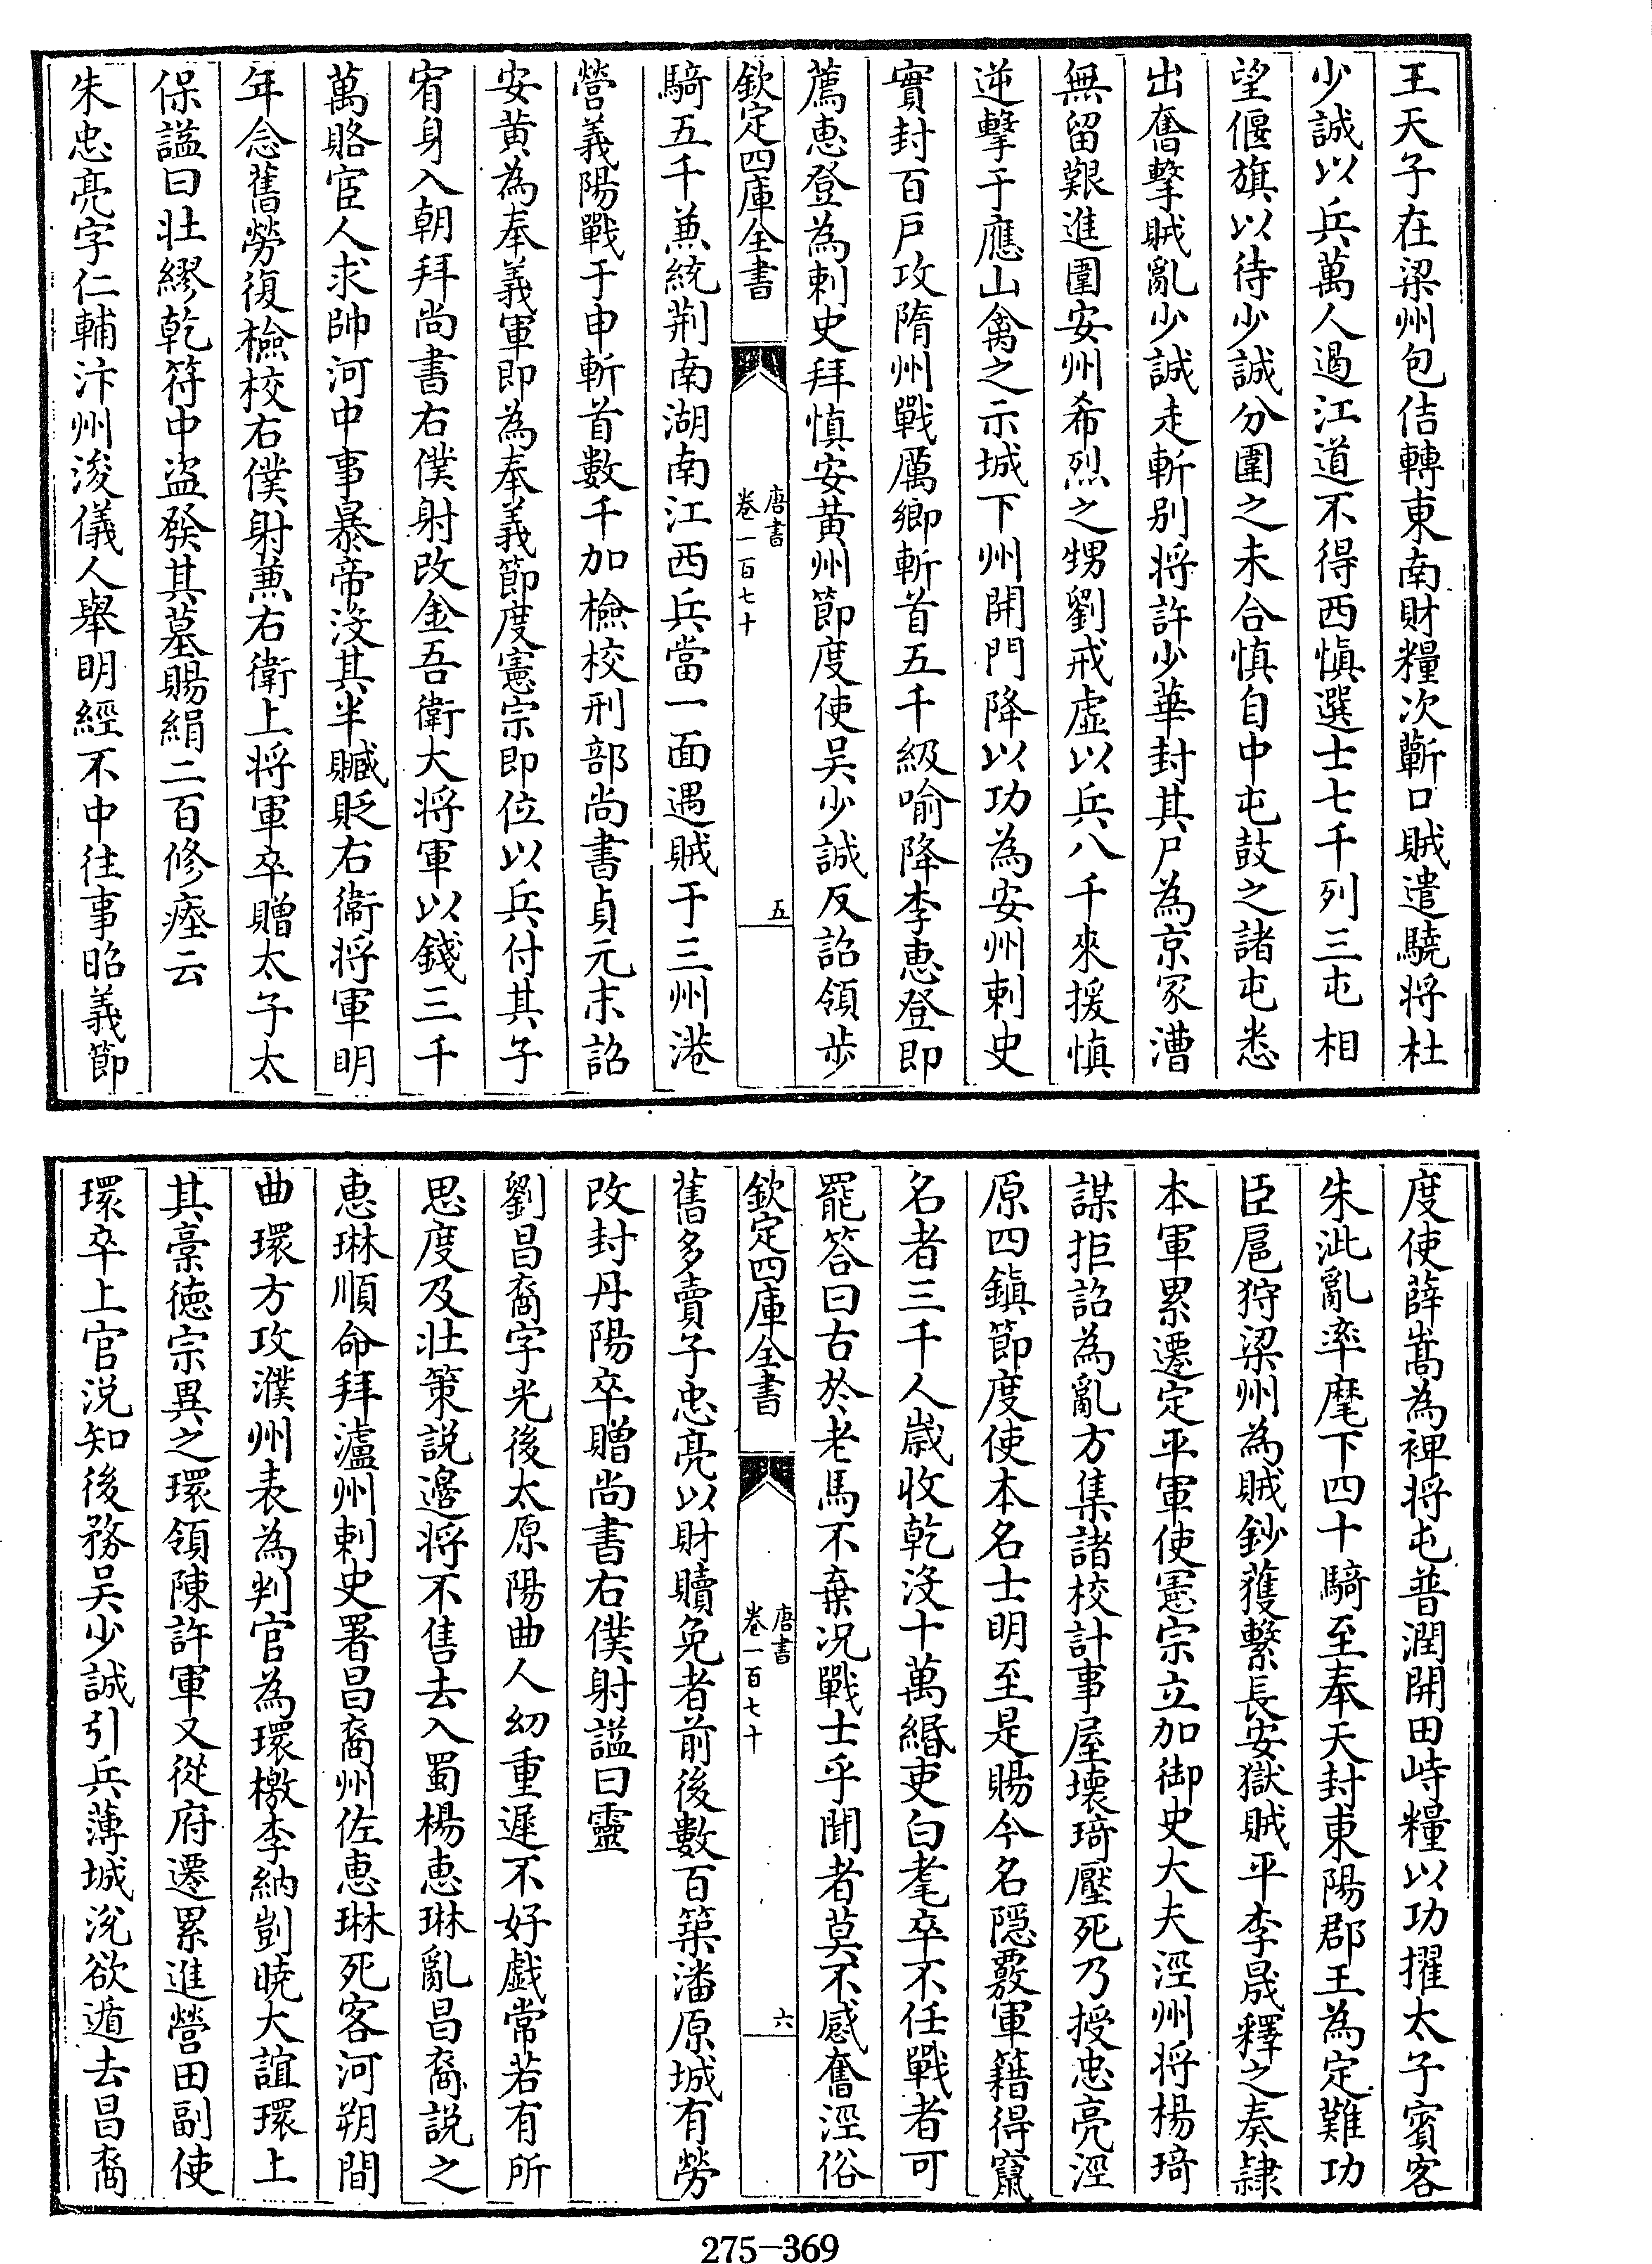 王天子在梁州包佶轉東南財糧次蘄口賊遣驍将杜
少誠以兵萬人遏江道不得西愼選士七千列三屯相
望偃旗以待少誠分圍之未合慎自中屯鼓之諸屯悉
出奮擊賊亂少誠走斬别将許少華封其尸為京冢漕
無留艱進圍安州希烈之甥劉戒虚以兵八千來援慎
逆擊于應山禽之示城下州開門降以功為安州刺史
實封百户攻隋州戰厲鄉斬首五千級喻降李惠登即
薦惠登為刺史拜慎安黄州節度使吴少誠反詔領步
欽定四庫全書
唐書
卷一百七十
五
騎五千兼統荆南湖南江西兵當一面遇賊于三州港
營義陽戰于申斬首數千加檢校刑部尚書貞元末詔
安黄為奉義軍即為奉義節度憲宗即位以兵付其子
宥身入朝拜尚書右僕射改金吾衛大将軍以錢三千
萬賂宦人求帥河中事暴帝没其半贓貶右衛将軍明
年念舊勞復檢校右僕射兼右衛上将軍卒贈太子太
保謚曰壯繆乾符中盗發其墓賜絹二百修瘞云
朱忠亮字仁輔汴州浚儀人舉明經不中往事昭義節
度使薛嵩為裨将屯普潤開田峙糧以功擢太子賓客
朱泚亂率麾下四十騎至奉天封東陽郡王為定難功
臣扈狩梁州為賊鈔獲繫長安獄賊平李晟釋之奏隷
本軍累遷定平軍使憲宗立加御史大夫涇州将楊琦
謀拒詔為亂方集諸校計事屋壊琦壓死乃授忠亮涇
原四鎮節度使本名士明至是賜今名隱覈軍籍得竄
名者三千人歳收乾没十萬緡吏白耄卒不任戰者可
罷答曰古於老馬不棄况戰士乎聞者莫不感奮涇俗
欽定四庫全書
唐書
卷一百七十
六
舊多賣子忠亮以財贖免者前後數百築潘原城有勞
改封丹陽卒贈尚書右僕射謚曰靈
劉昌裔字光後太原陽曲人幼重遲不好戯常若有所
思度及壯策説邊将不售去入蜀楊惠琳亂昌裔説之
惠琳順命拜瀘州刺史署昌裔州佐惠琳死客河朔間
曲環方攻濮州表為判官為環檄李納剴曉大誼環上
其稾德宗異之環領陳許軍又從府遷累進營田副使
環卒上官涚知後務吴少誠引兵薄城涚欲遁去昌裔
275-369